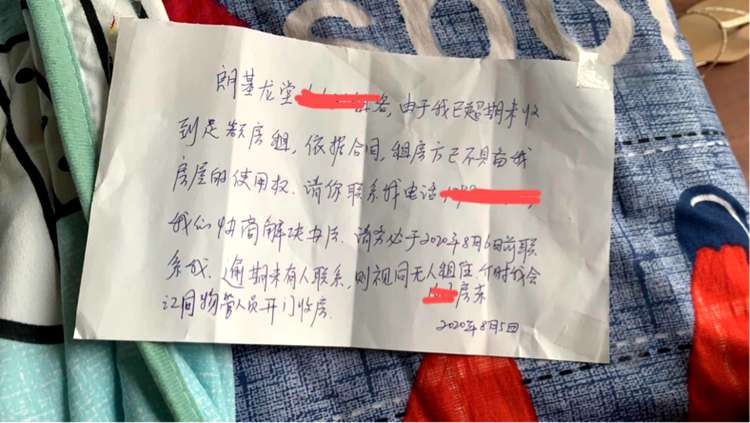 朗基龙堂 由于我已超期未收
到足额房租，依据合同，租房方已不具备我
房屋的使用权．请你联系我电话
我们协商解决办法．请务必于2020年8月6日前联
系我．逾期未有人联系，则视同无人租住．介时我会
同物管人员开门收房．
房东
2020年8月5日